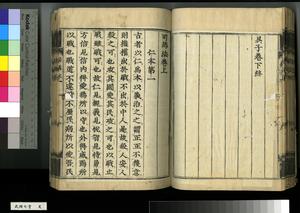 吳子卷下終
司馬法卷上
仁本第一
古者以仁爲本以義治之之謂正正不獲意
則權權出於戰不出於中人是故殺人安人
殺之可也攻其國愛其民攻之可也以戰止
戰雖戰可也故仁見親義見說智見恃勇見
方信見信内得愛焉所以守也外得威焉所
以戰也戰道不違時不歷民病所以愛吾民
Kodak
武經七書